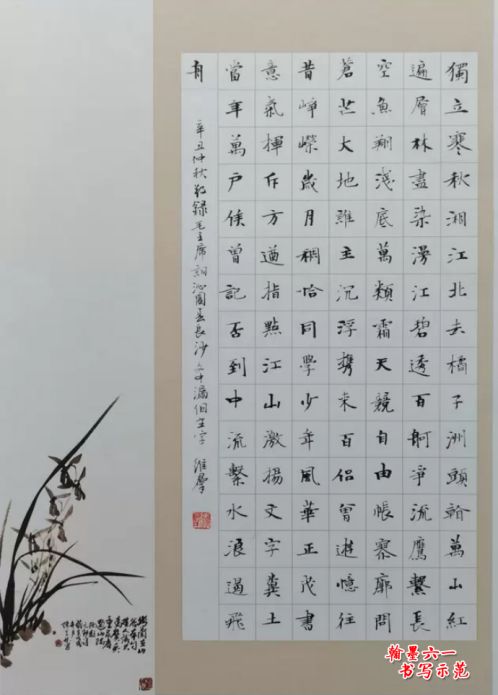 獨立寒秋湘江北去橘子洲頭看萬山紅
遍層林盡染漫江碧透百舸爭流鷹擊長
空魚翔淺底萬類霜天競自由悵寥廓問
蒼茫大地誰主沉浮攜來百侶曾遊憶往
昔崢嶸歲月稠恰同學少年風華正茂書
意氣揮斥方遒指點江山激揚文字糞土
當年萬戶侯曾記否到中流擊水浪遏飛
舟
辛丑仲秋敬錄毛主席詞沁園春長沙文中漏個空字
翰墨六一
书写示范